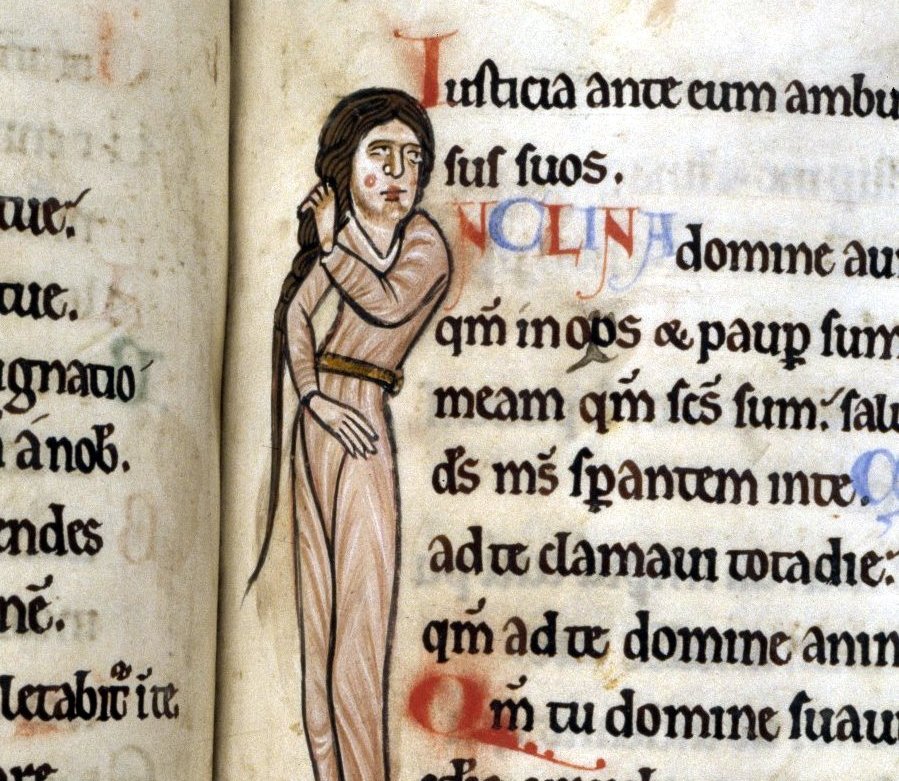 tue.
tue.
ignatio
á nob̄.
endes
nē.
letabit᷑ ī te
Iusticia ante eum ambu
sus suos.
INCLINA domine au
qm̄ inops & paup̱ sum
meam qm̄ sc̄s sum: salu
ds̄ ms̄ sp̱antem in te.
ad te clamaui tota die:
qm̄ ad te domine anim
Qm̄ tu domine suau